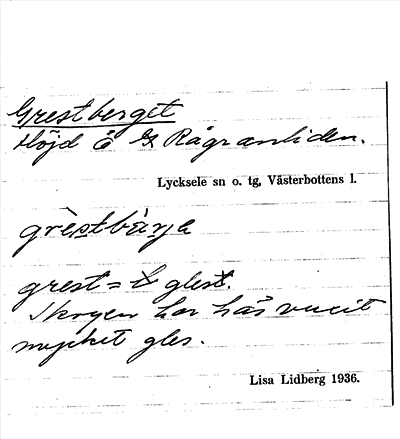 Grestberget
Höjd å G Rågranliden.
Lycksele sn o. tg, Västerbottens l.
grèstbàrja
grest = glest.
Skogen har här vuxit
mycket gles.
Lisa Lidberg 1936.